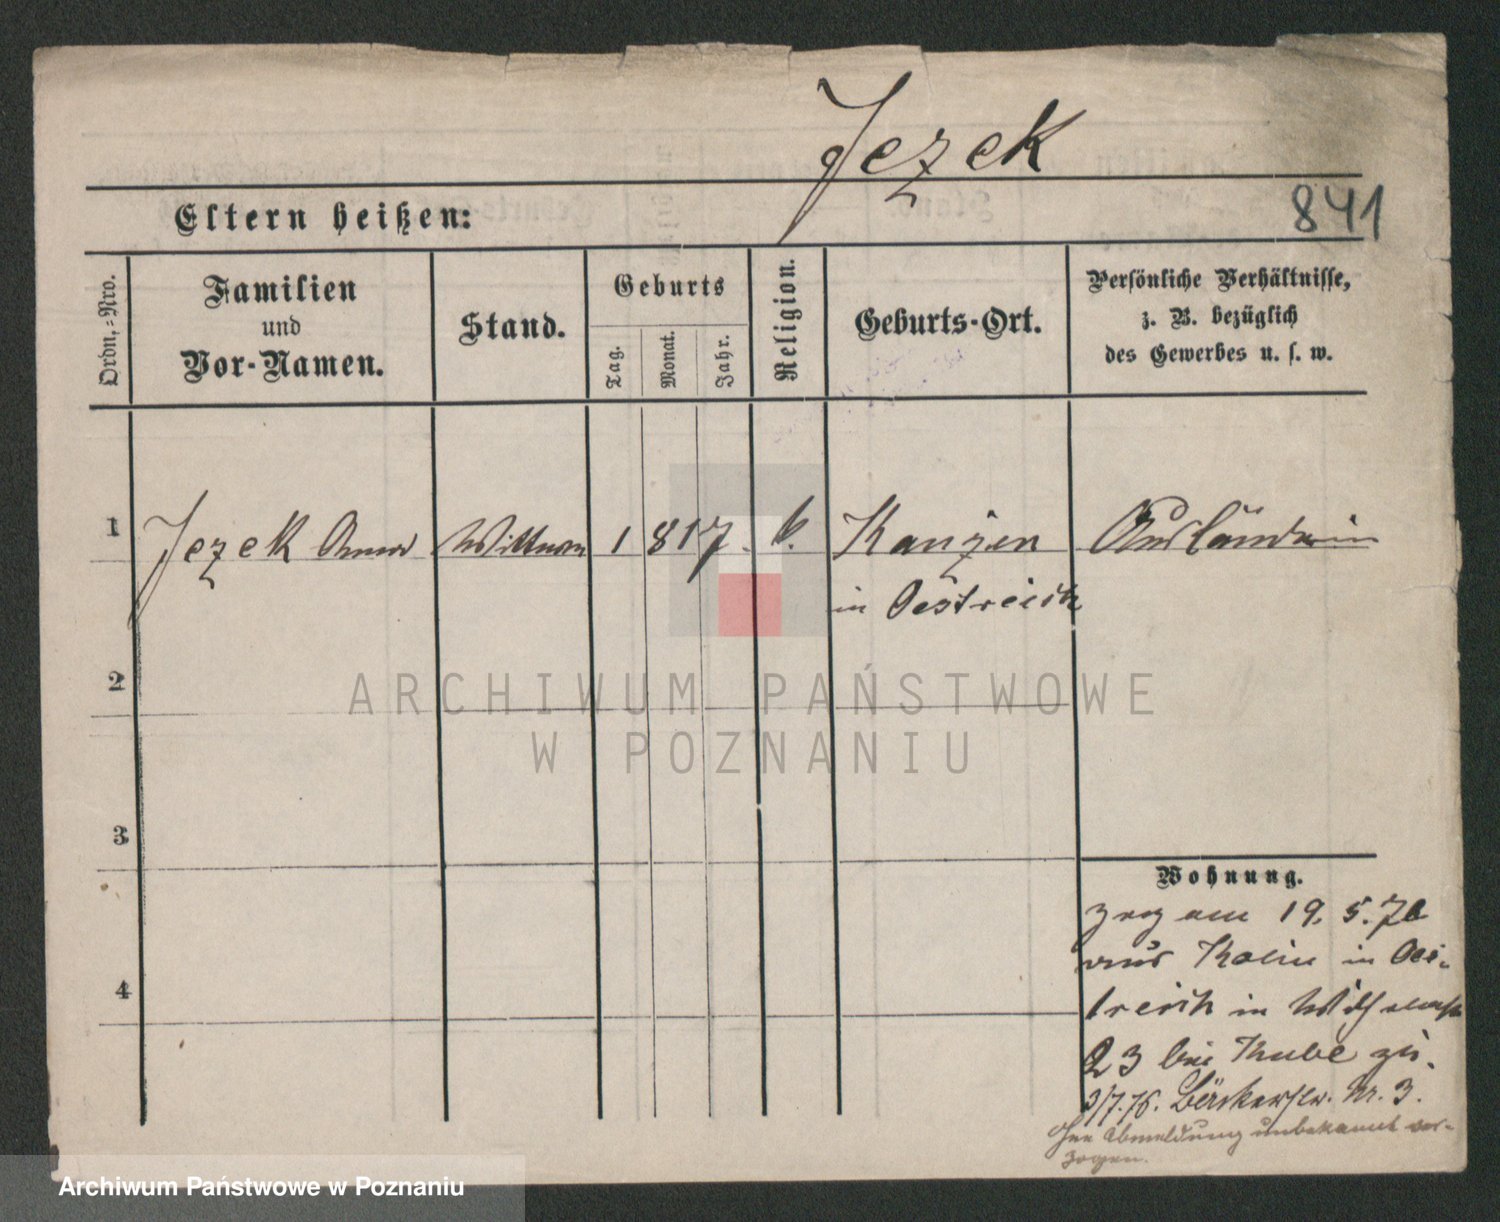 Jezek
841
Eltern heißen:
Ordn.-Nro.
Familien
und
Vor-Namen.
Stand.
Geburts
Tag.
Monat.
Jahr.
Religion.
Geburts-Ort.
Persönliche Verhältnisse,
z. B. bezüglich
des Gewerbes u. s. w.
1
Jezek Anna Wittwe 1817. k. Kanzen Ausländerin
in Oestreich
2
ARCHIWUM PAŃSTWOWE
W POZNANIU
3
Wohnung.
am 19. 5. 76
aus Kolin in Oes-
treich in Wilhelmstr
23 bei Kube zu.
3/7.76. Bäckerstr. Nr. 3.
4
ohne Abmeldung unbekannt ver-
zogen.
Archiwum Państwowe w Poznaniu